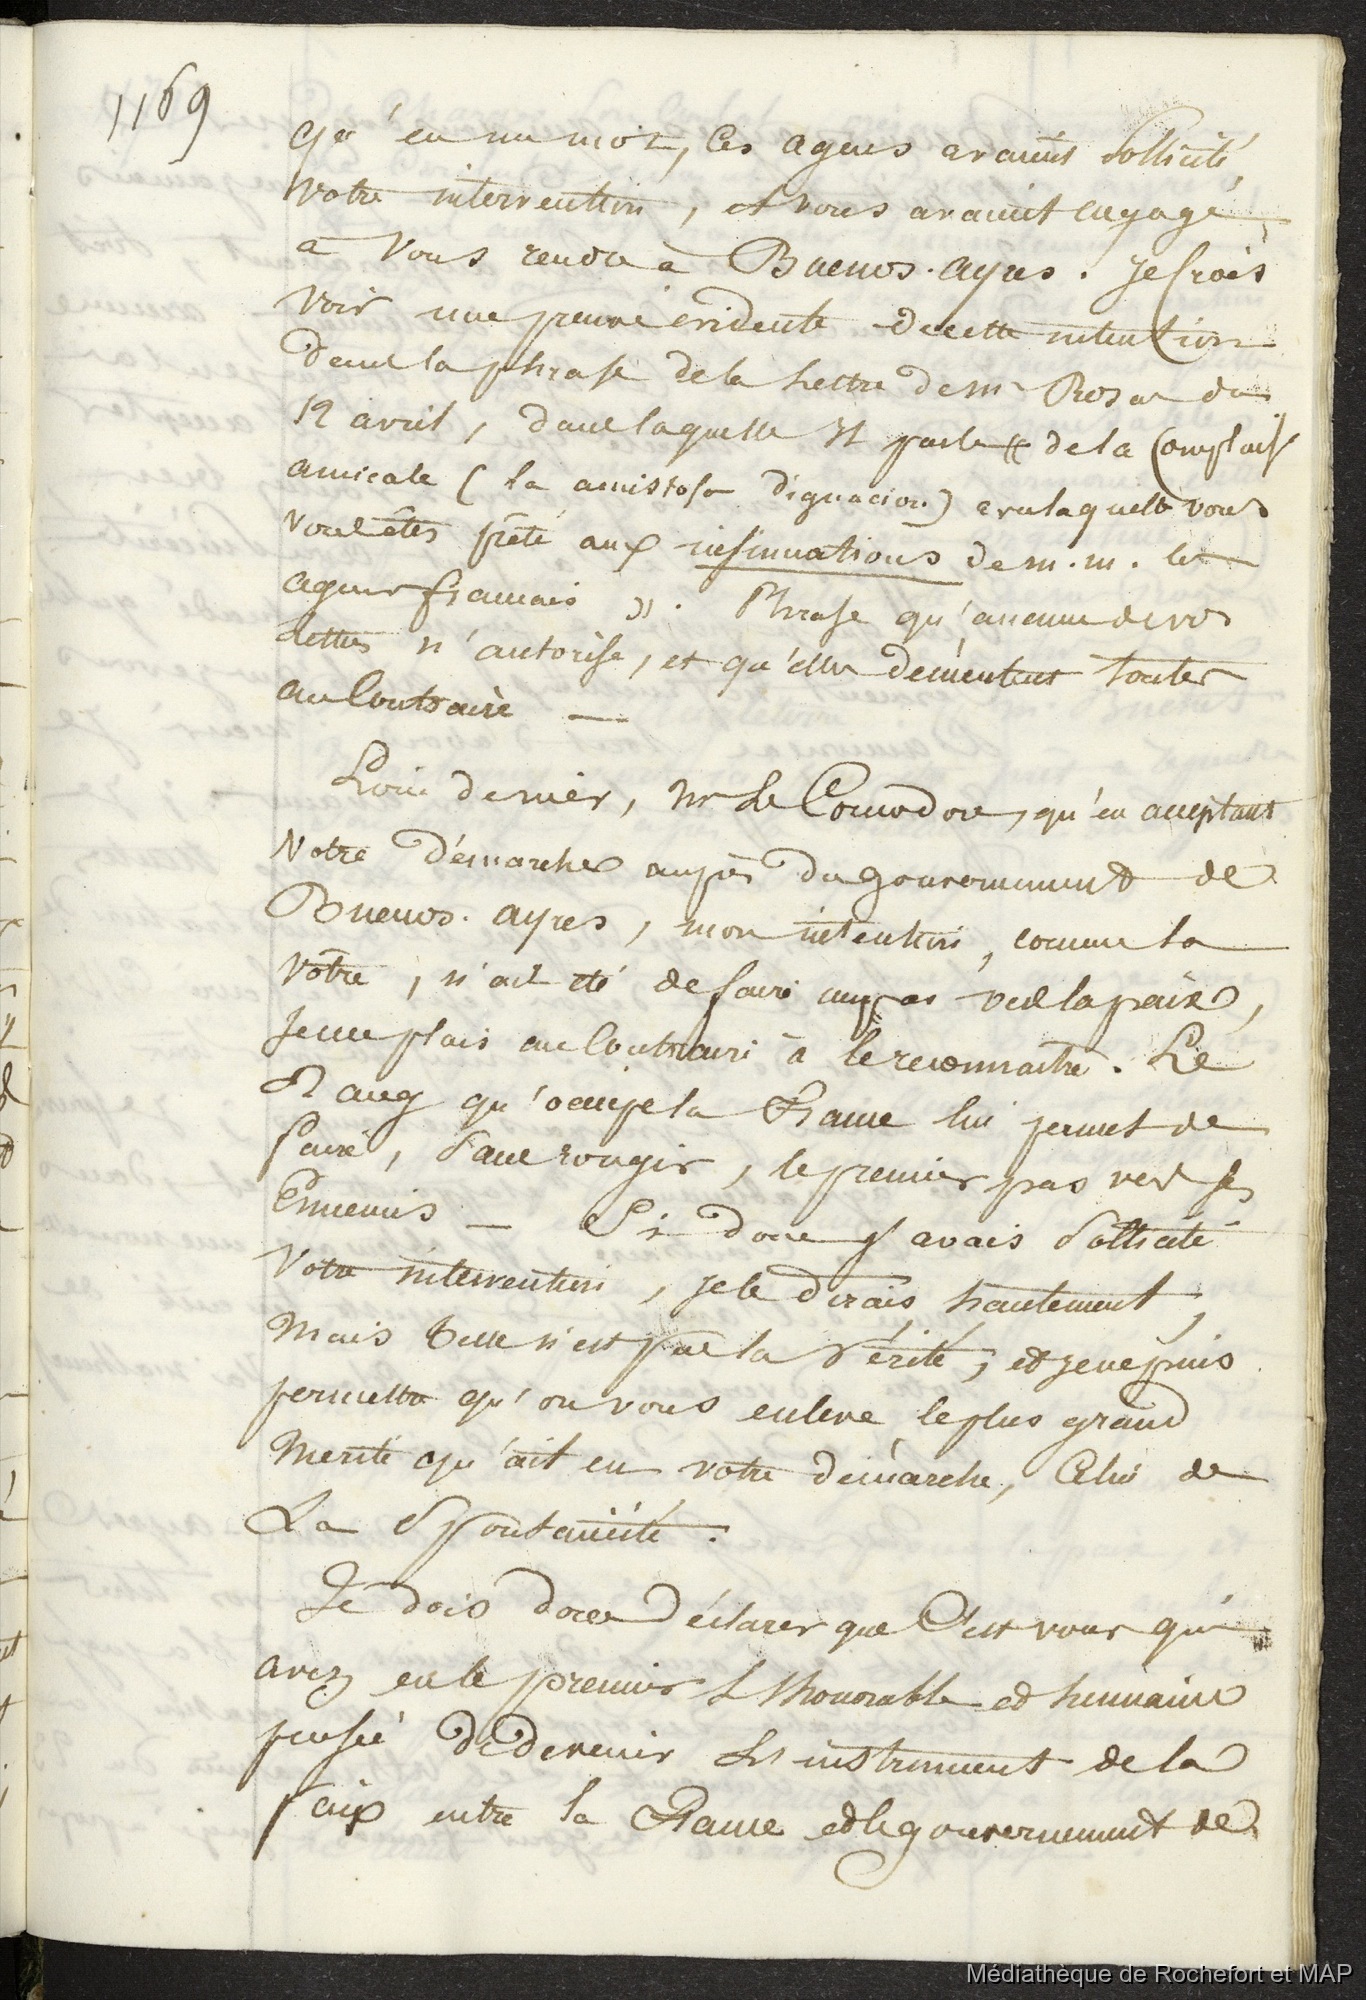 1169
qu'en un mot, Ces agens avaient Sollicité
votre intervention, et vous avaient engagé
a Vous rendre à Buenos. ayres. Je Crois
voir une preuve évidente de cette intention
dans la phrase de la lettre de mr Rosas du
12 avril, dans laquelle il parle « de la Complais
amicale (la amistosa dignacion) avec laquelle vous
vous êtes prêté aux insinuations de m.m. les
agens français ». Phrase qu'aucune de vos
lettres n'autorise, et qu'elles démentent toutes
au Contraire —
Loin de nier, mr Le Comodore, qu'en acceptant
Votre démarche auprès du gouvernement de
Buenos. ayres, mon intention, comme la
vôtre, n'ait été de faire un pas vers la paix,
Je me plais au Contraire à le reconnaitre. Le
Rang qu'occupe la France lui permet de
faire, Sans rougir, le premier pas vers ses
Ennemis — Si donc j'avais Sollicité
Votre intervention, je le dirais hautement,
Mais telle n'est pas la Vérité, et je ne puis
permettre qu'on vous enleve le plus grand
Merite qu'ait eu votre démarche, Celui de
La Spontanéité.
Je dois donc Déclarer que C'est vous qui
avez eu le premier L'honorable et humaine
pensée de devenir L'instrument de la
paix entre la France et le gouvernement de
Médiathèque de Rochefort et MAP